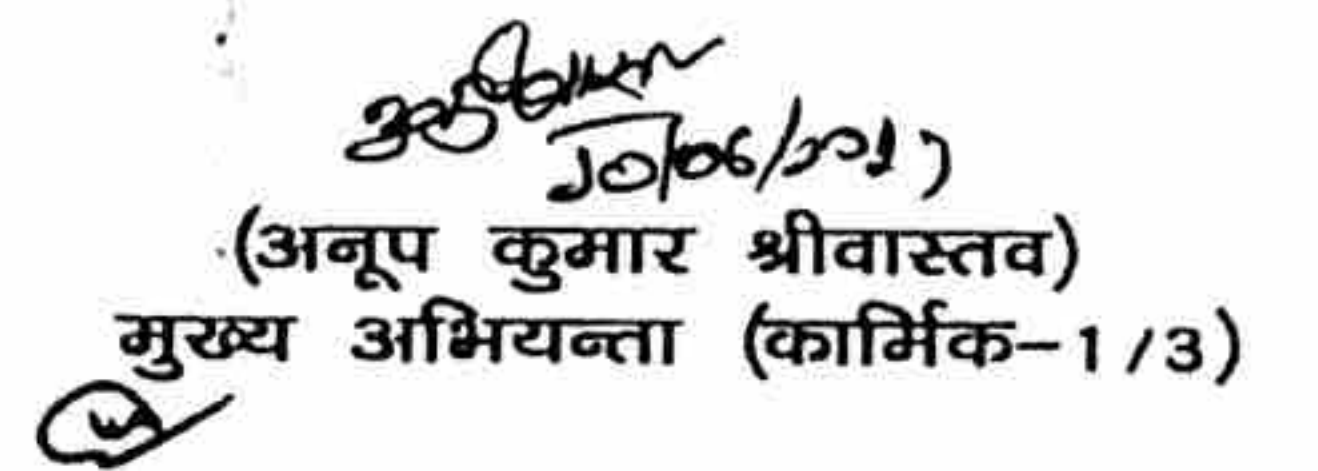 10/06/2017
(अनूप कुमार श्रीवास्तव)
मुख्य अभियन्ता (कार्मिक-1/3)